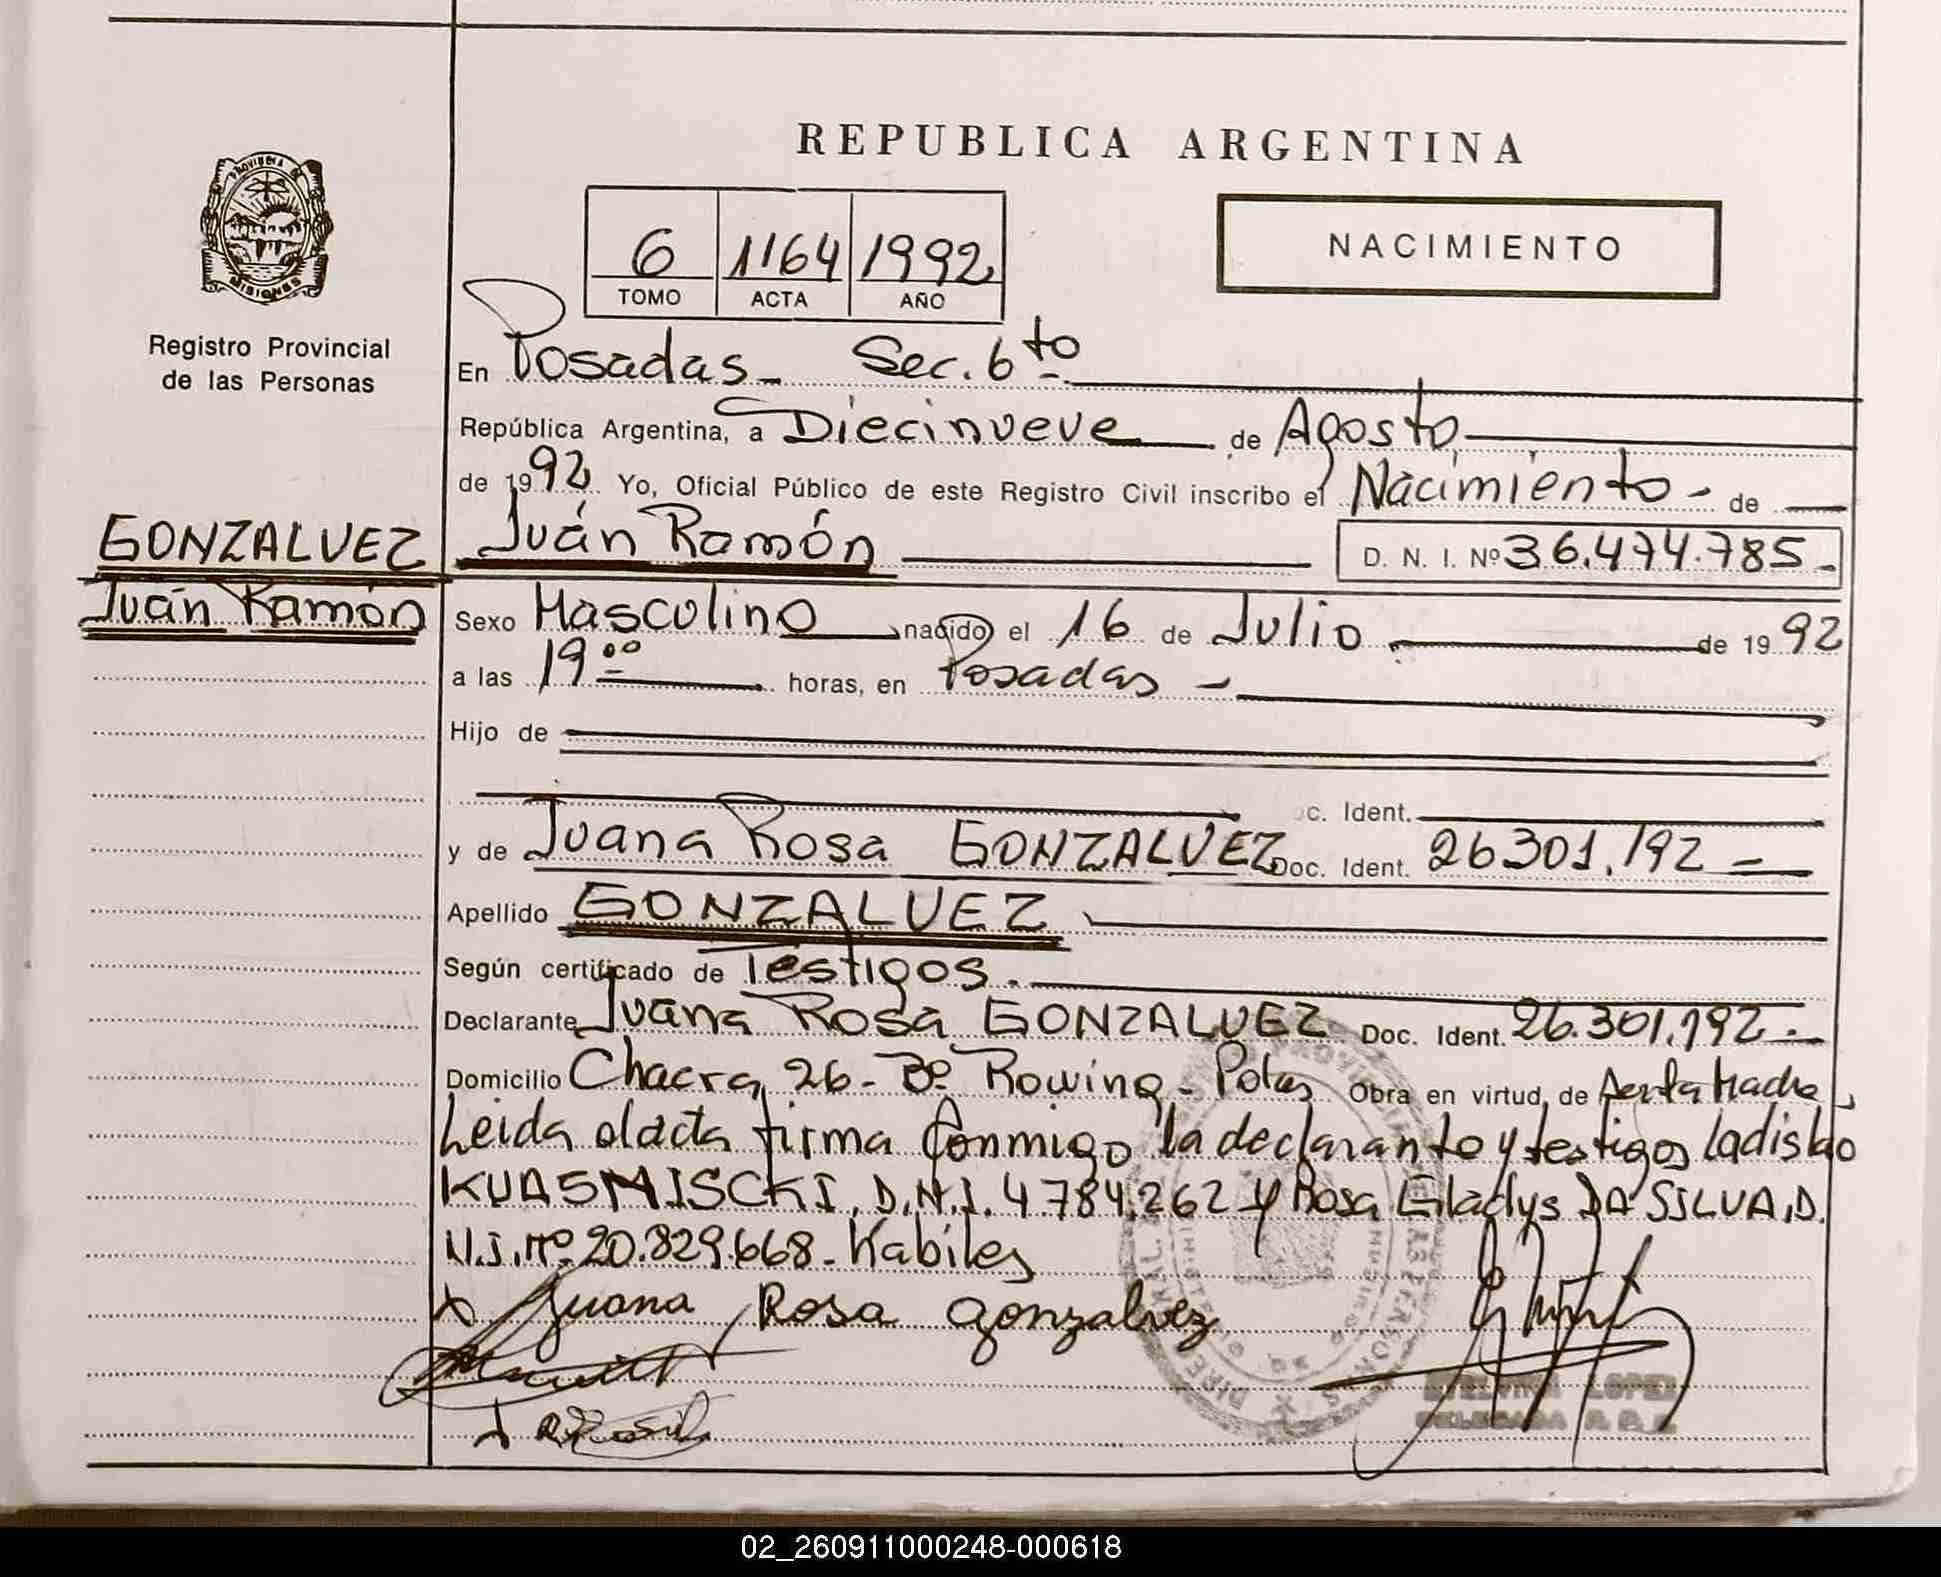 REPUBLICA ARGENTINA
PROVINCIA DE
MISIONES
Registro Provincial
de las Personas
6 1164 1992
TOMO ACTA AÑO
NACIMIENTO
En Posadas - Sec. 6to
República Argentina, a Diecinueve de Agosto
de 1992 Yo, Oficial Público de este Registro Civil inscribo el Nacimiento - de
GONZALVEZ
Juán Ramón
Juán Ramón D. N. I. Nº 36.474.785 -
Sexo Masculino nacido el 16 de Julio de 1992
a las 19 00 horas, en Posadas -
Hijo de
c. Ident.
y de Juana Rosa GONZALVEZ Doc. Ident. 26301.192 =
Apellido GONZALVEZ
Según certificado de Testigos.
Declarante Juana Rosa GONZALVEZ Doc. Ident. 26.301.192 -
Domicilio Chacra 26 - Bº Rowing - Pdas Obra en virtud de Madre
Leida el acta firma conmigo la declarante y testigos Ladislao
KUASMISCKI, D.N.I. 4784.262 y Rosa Gladys DA SILVA, D.
N.I. Nº 20.829.668 - Habiles
x Juana Rosa Gonzalvez
LOPEZ
DELEGADA
02_260911000248-000618